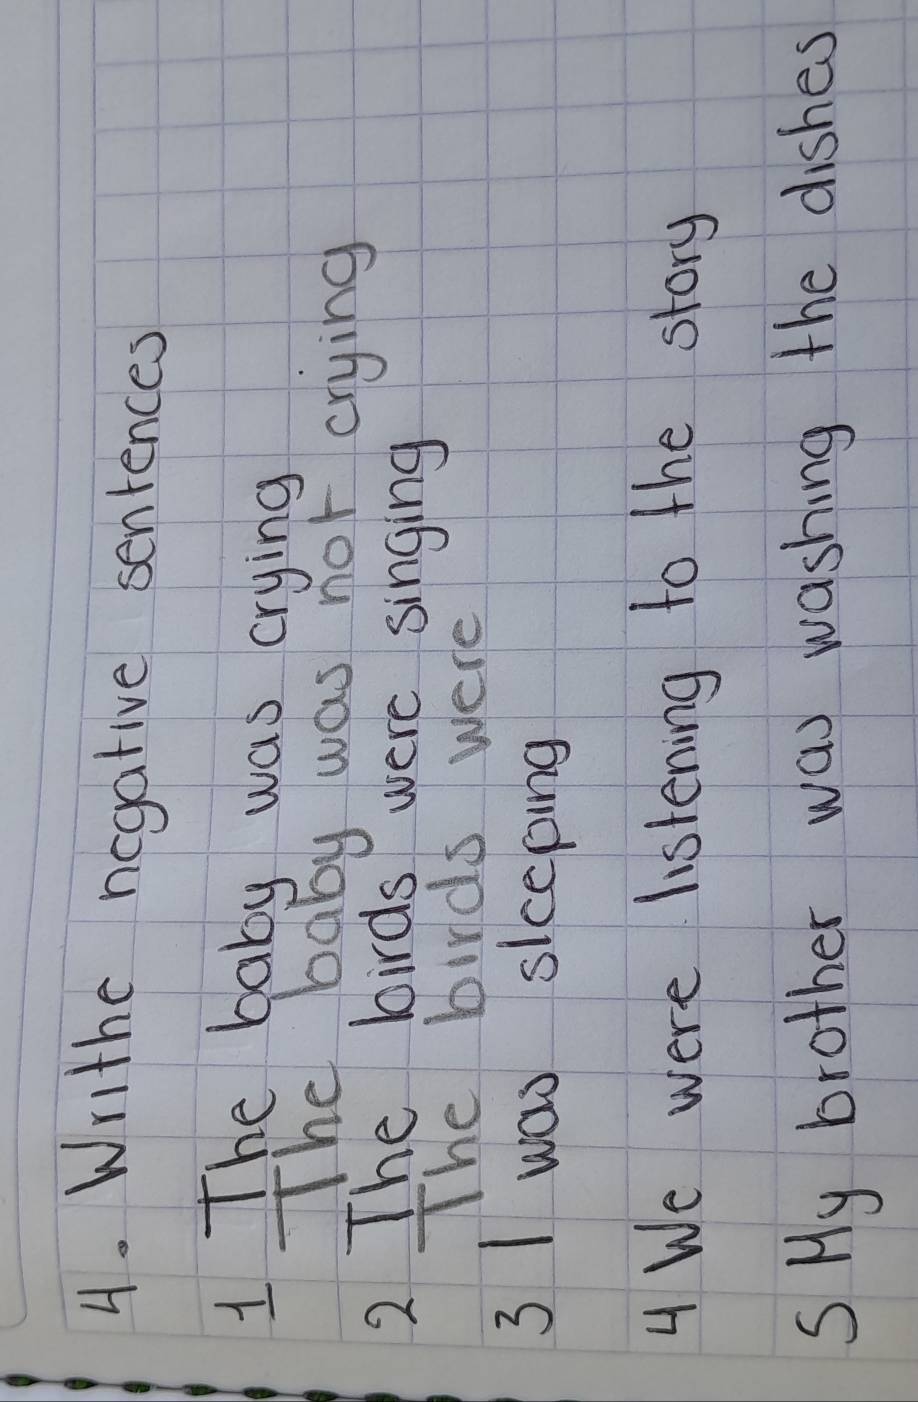 4. Writhe negative sentences
1 The baby was crying
The baby was not crying
2 The birds were singing
The birds were
3 I was sleeping
4 We were listening to the story
5 My brother was washing the dishes